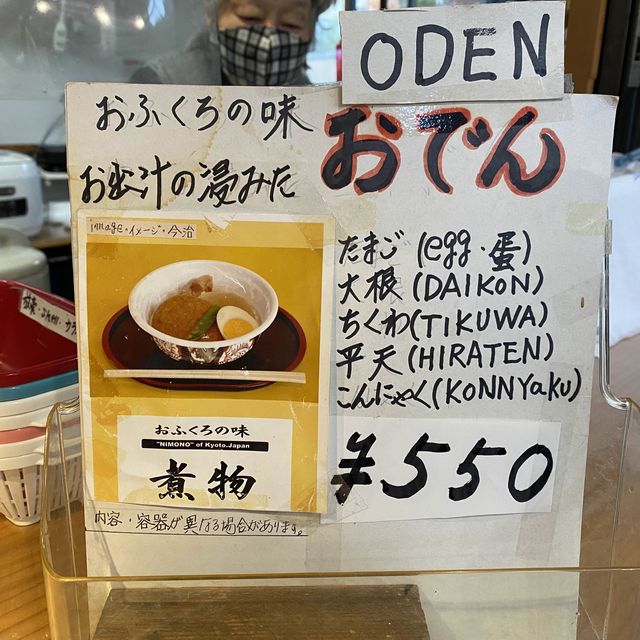 ODEN
おふくろの味
お出汁の浸みた
おでん
image・イメージ・今治
たまご (egg・蛋)
大根 (DAIKON)
ちくわ(TIKUWA)
平天 (HIRATEN)
こんにゃく(KONNYaKU)
おふくろの味
"NIMONO" of Kyoto.Japan
煮物
¥550
内容・容器が異なる場合があります。